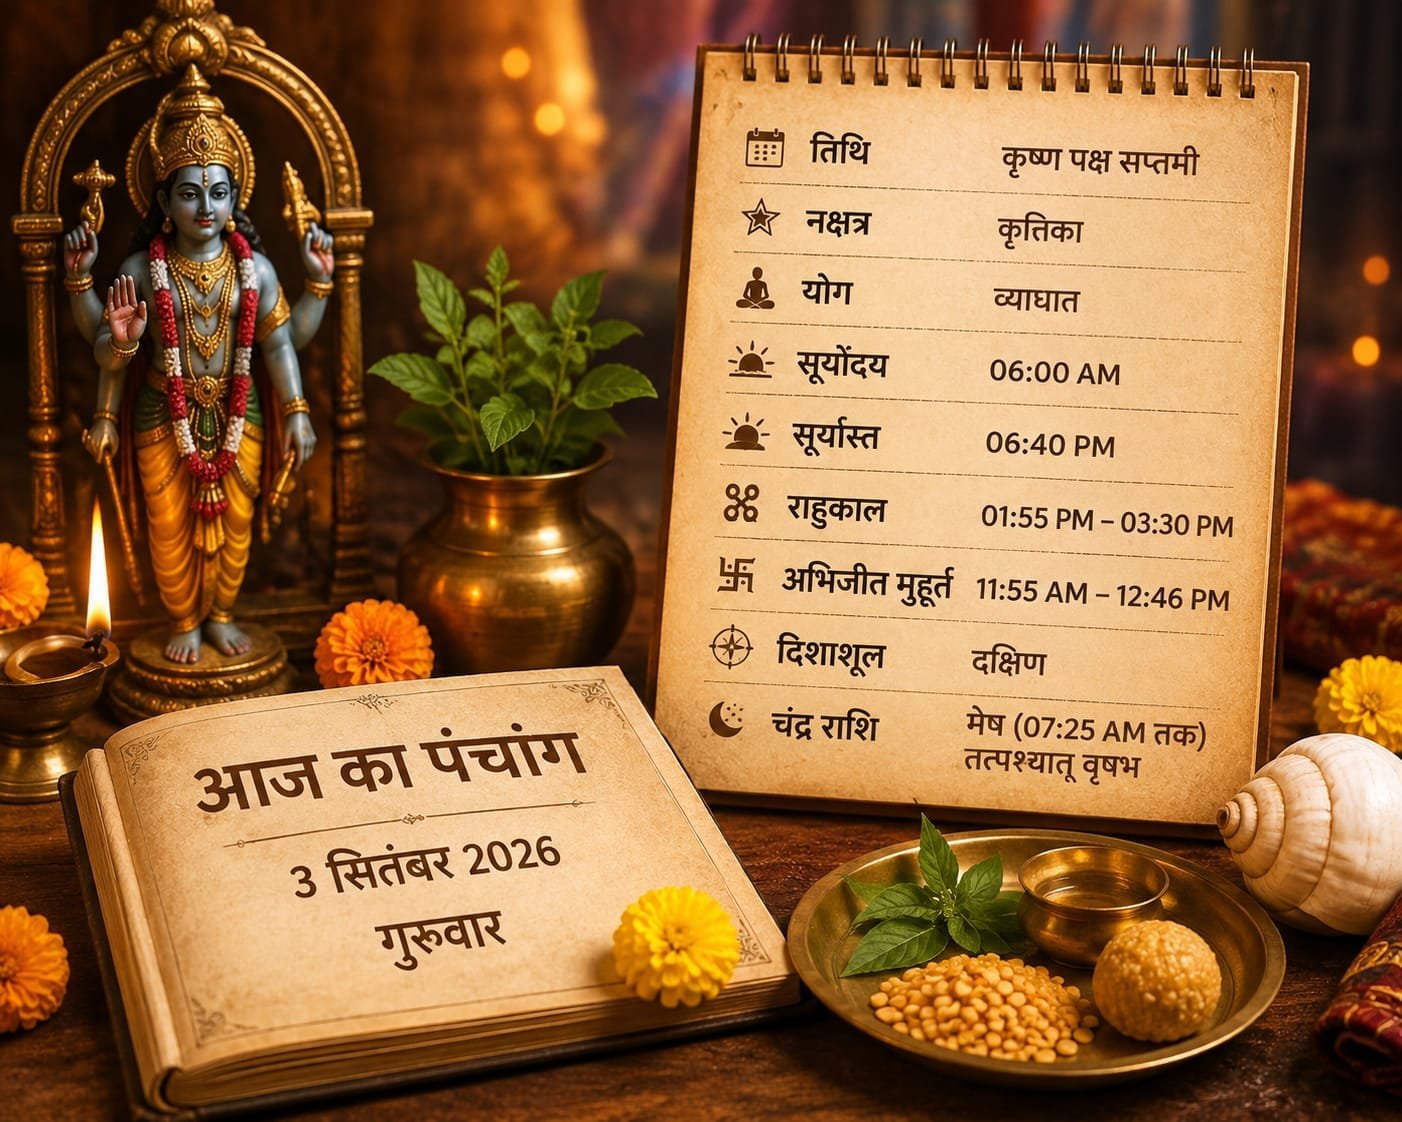 आज का पंचांग
3 सितंबर 2026
गुरुवार
तिथि कृष्ण पक्ष सप्तमी
नक्षत्र कृतिका
योग व्याघात
सूर्योंदय 06:00 AM
सूर्यास्त 06:40 PM
राहुकाल 01:55 PM – 03:30 PM
अभिजीत मुहूर्त 11:55 AM – 12:46 PM
दिशाशूल दक्षिण
चंद्र राशि मेष (07:25 AM तक)
तत्पश्यातू वृषभ